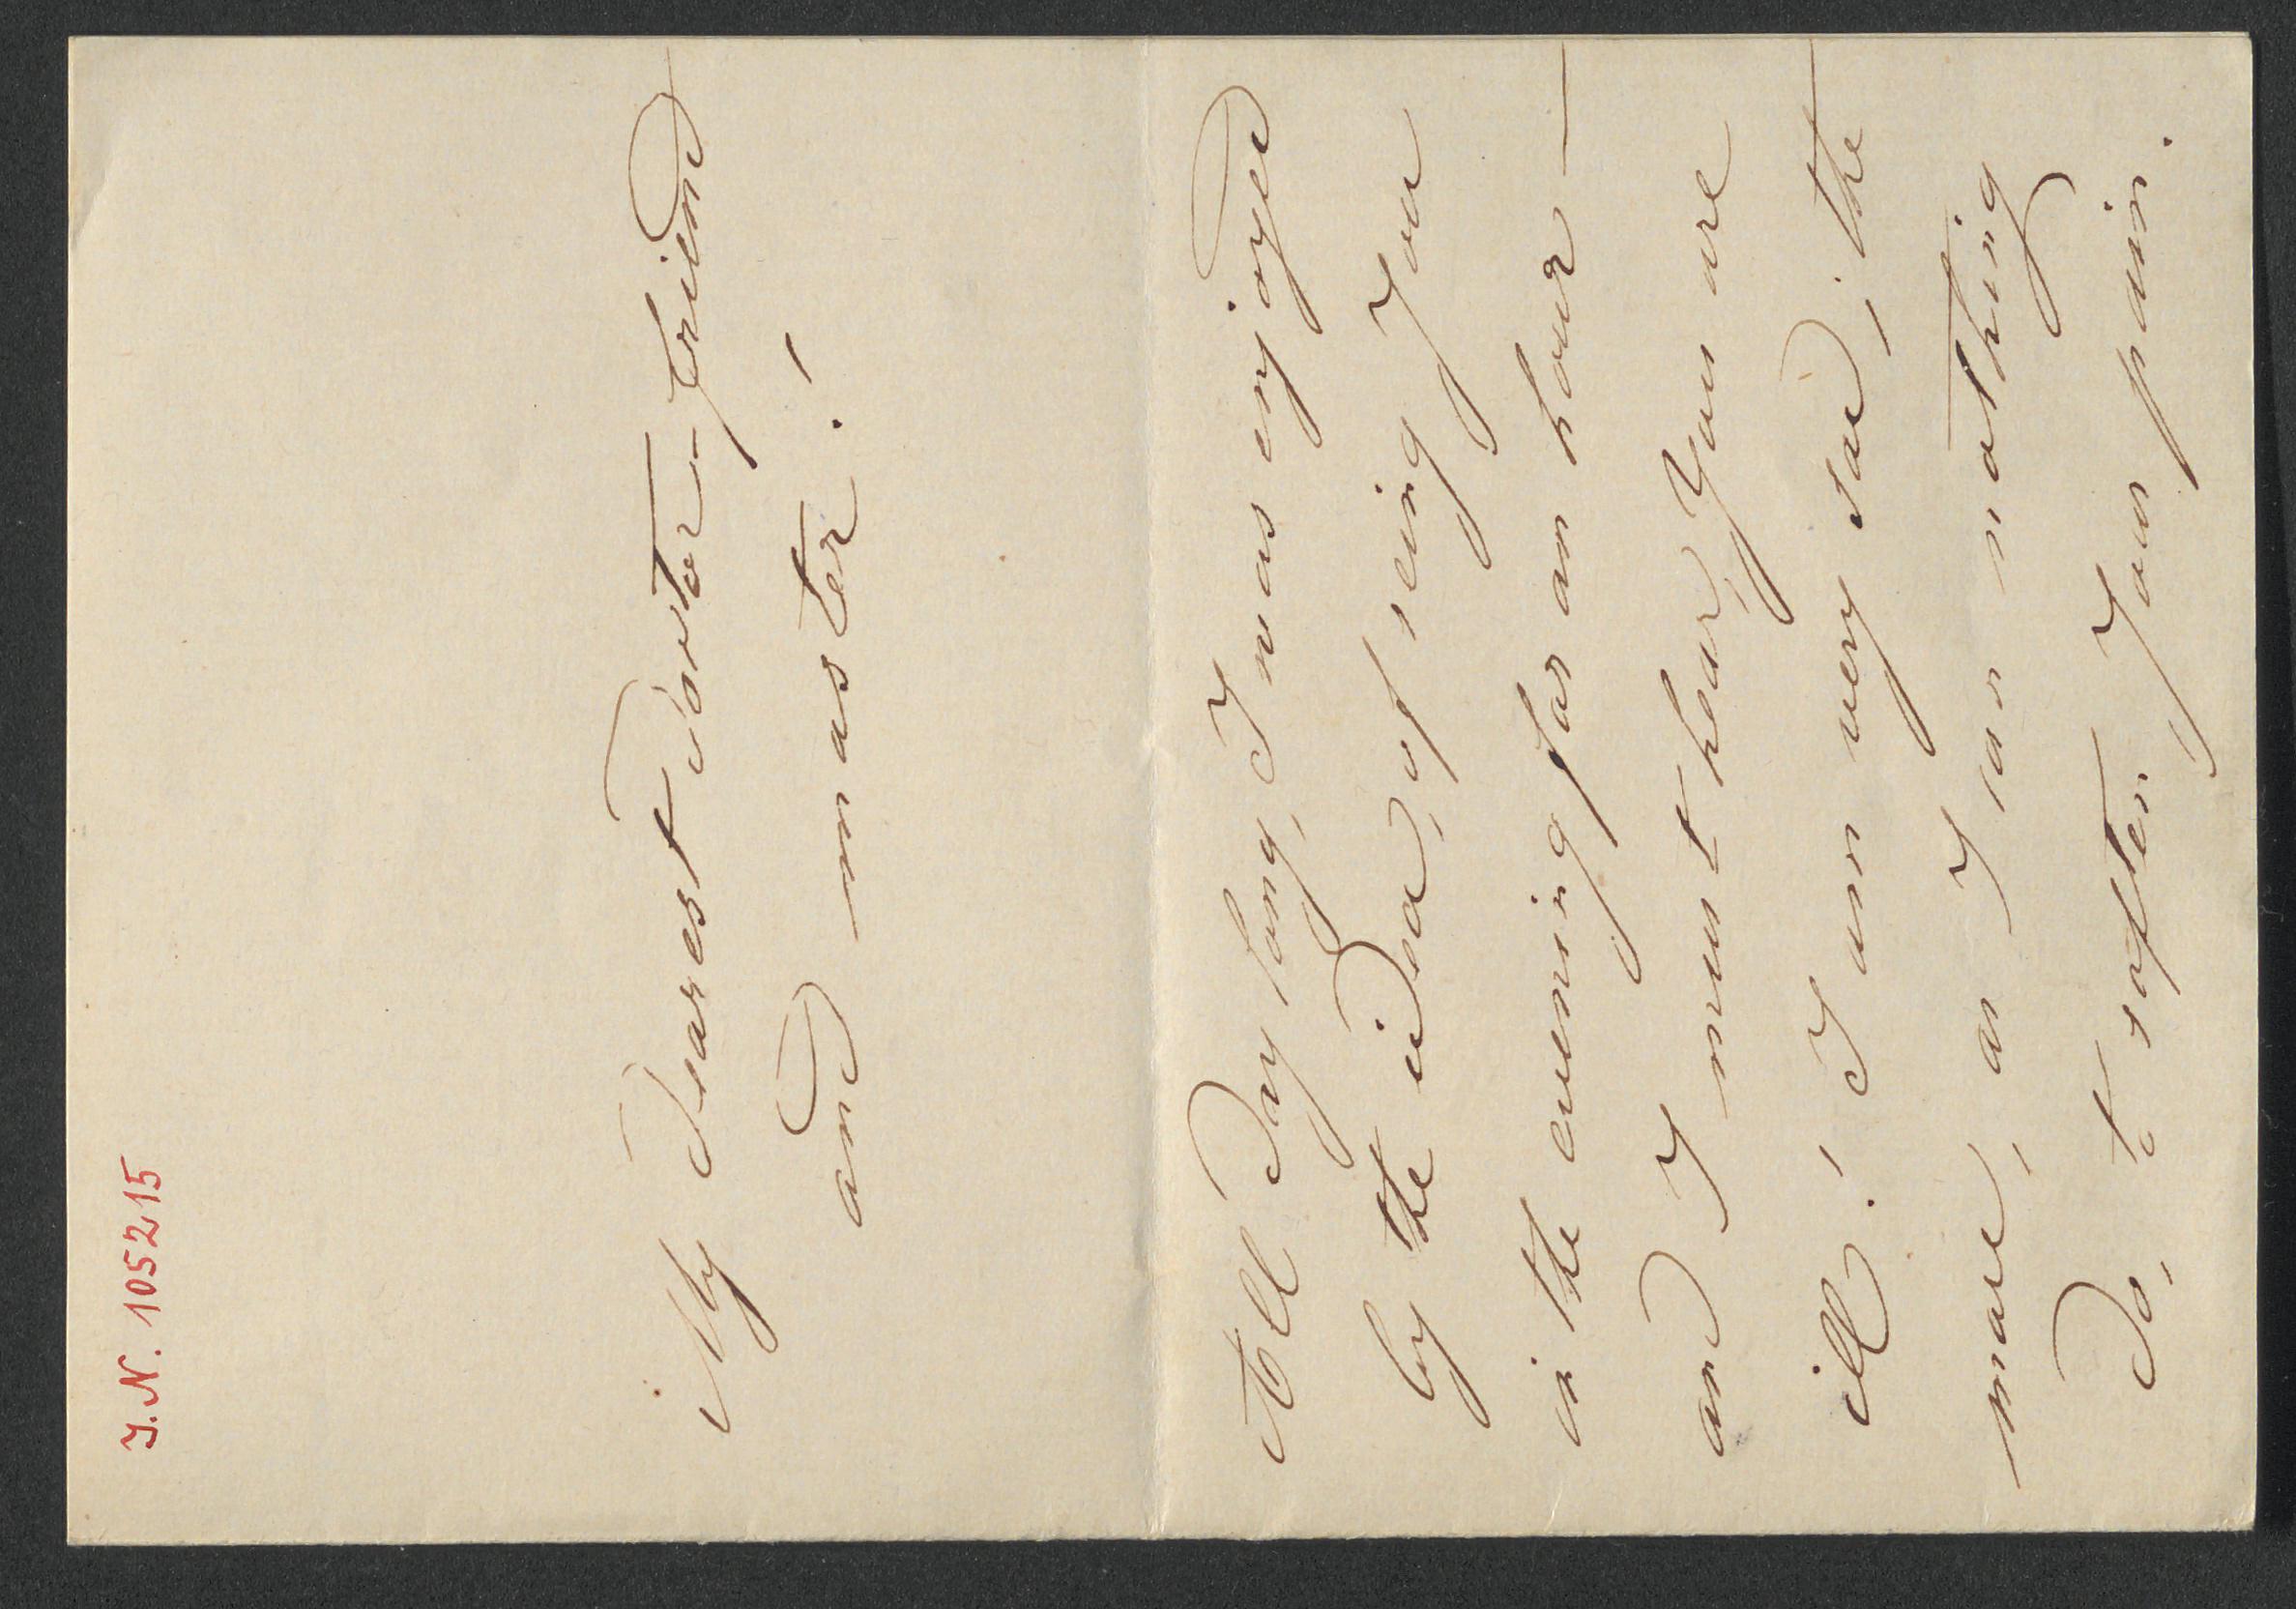 J.N. 105215
My dearest doctor-friend
and master!
All day long, I was enjoyed
by the idea, of seing You
in the evening for an hour —
and I must hear, You are
ill! I am very sad, the
more, as I can nothing
do, t soften Your pain.